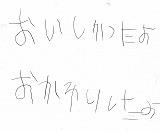 おいしかったよ
おかわりしたよ